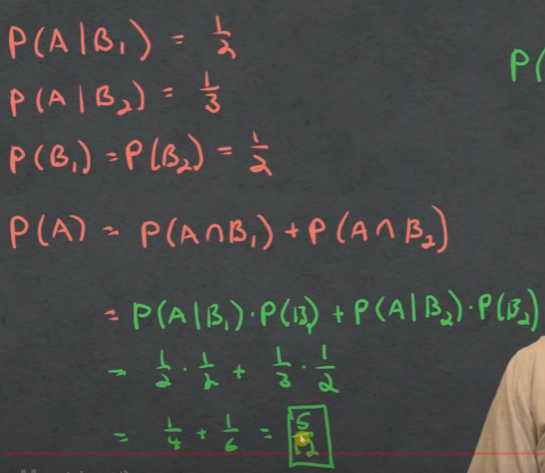 P(A|B₁) = 1/2
P(
P(A|B₂) = 1/3
P(B₁) = P(B₂) = 1/2
P(A) = P(A∩B₁) + P(A∩B₂)
= P(A|B₁)·P(B₁) + P(A|B₂)·P(B₂)
→ 1/2 · 1/2 + 1/3 · 1/2
= 1/4 + 1/6 = 5/12